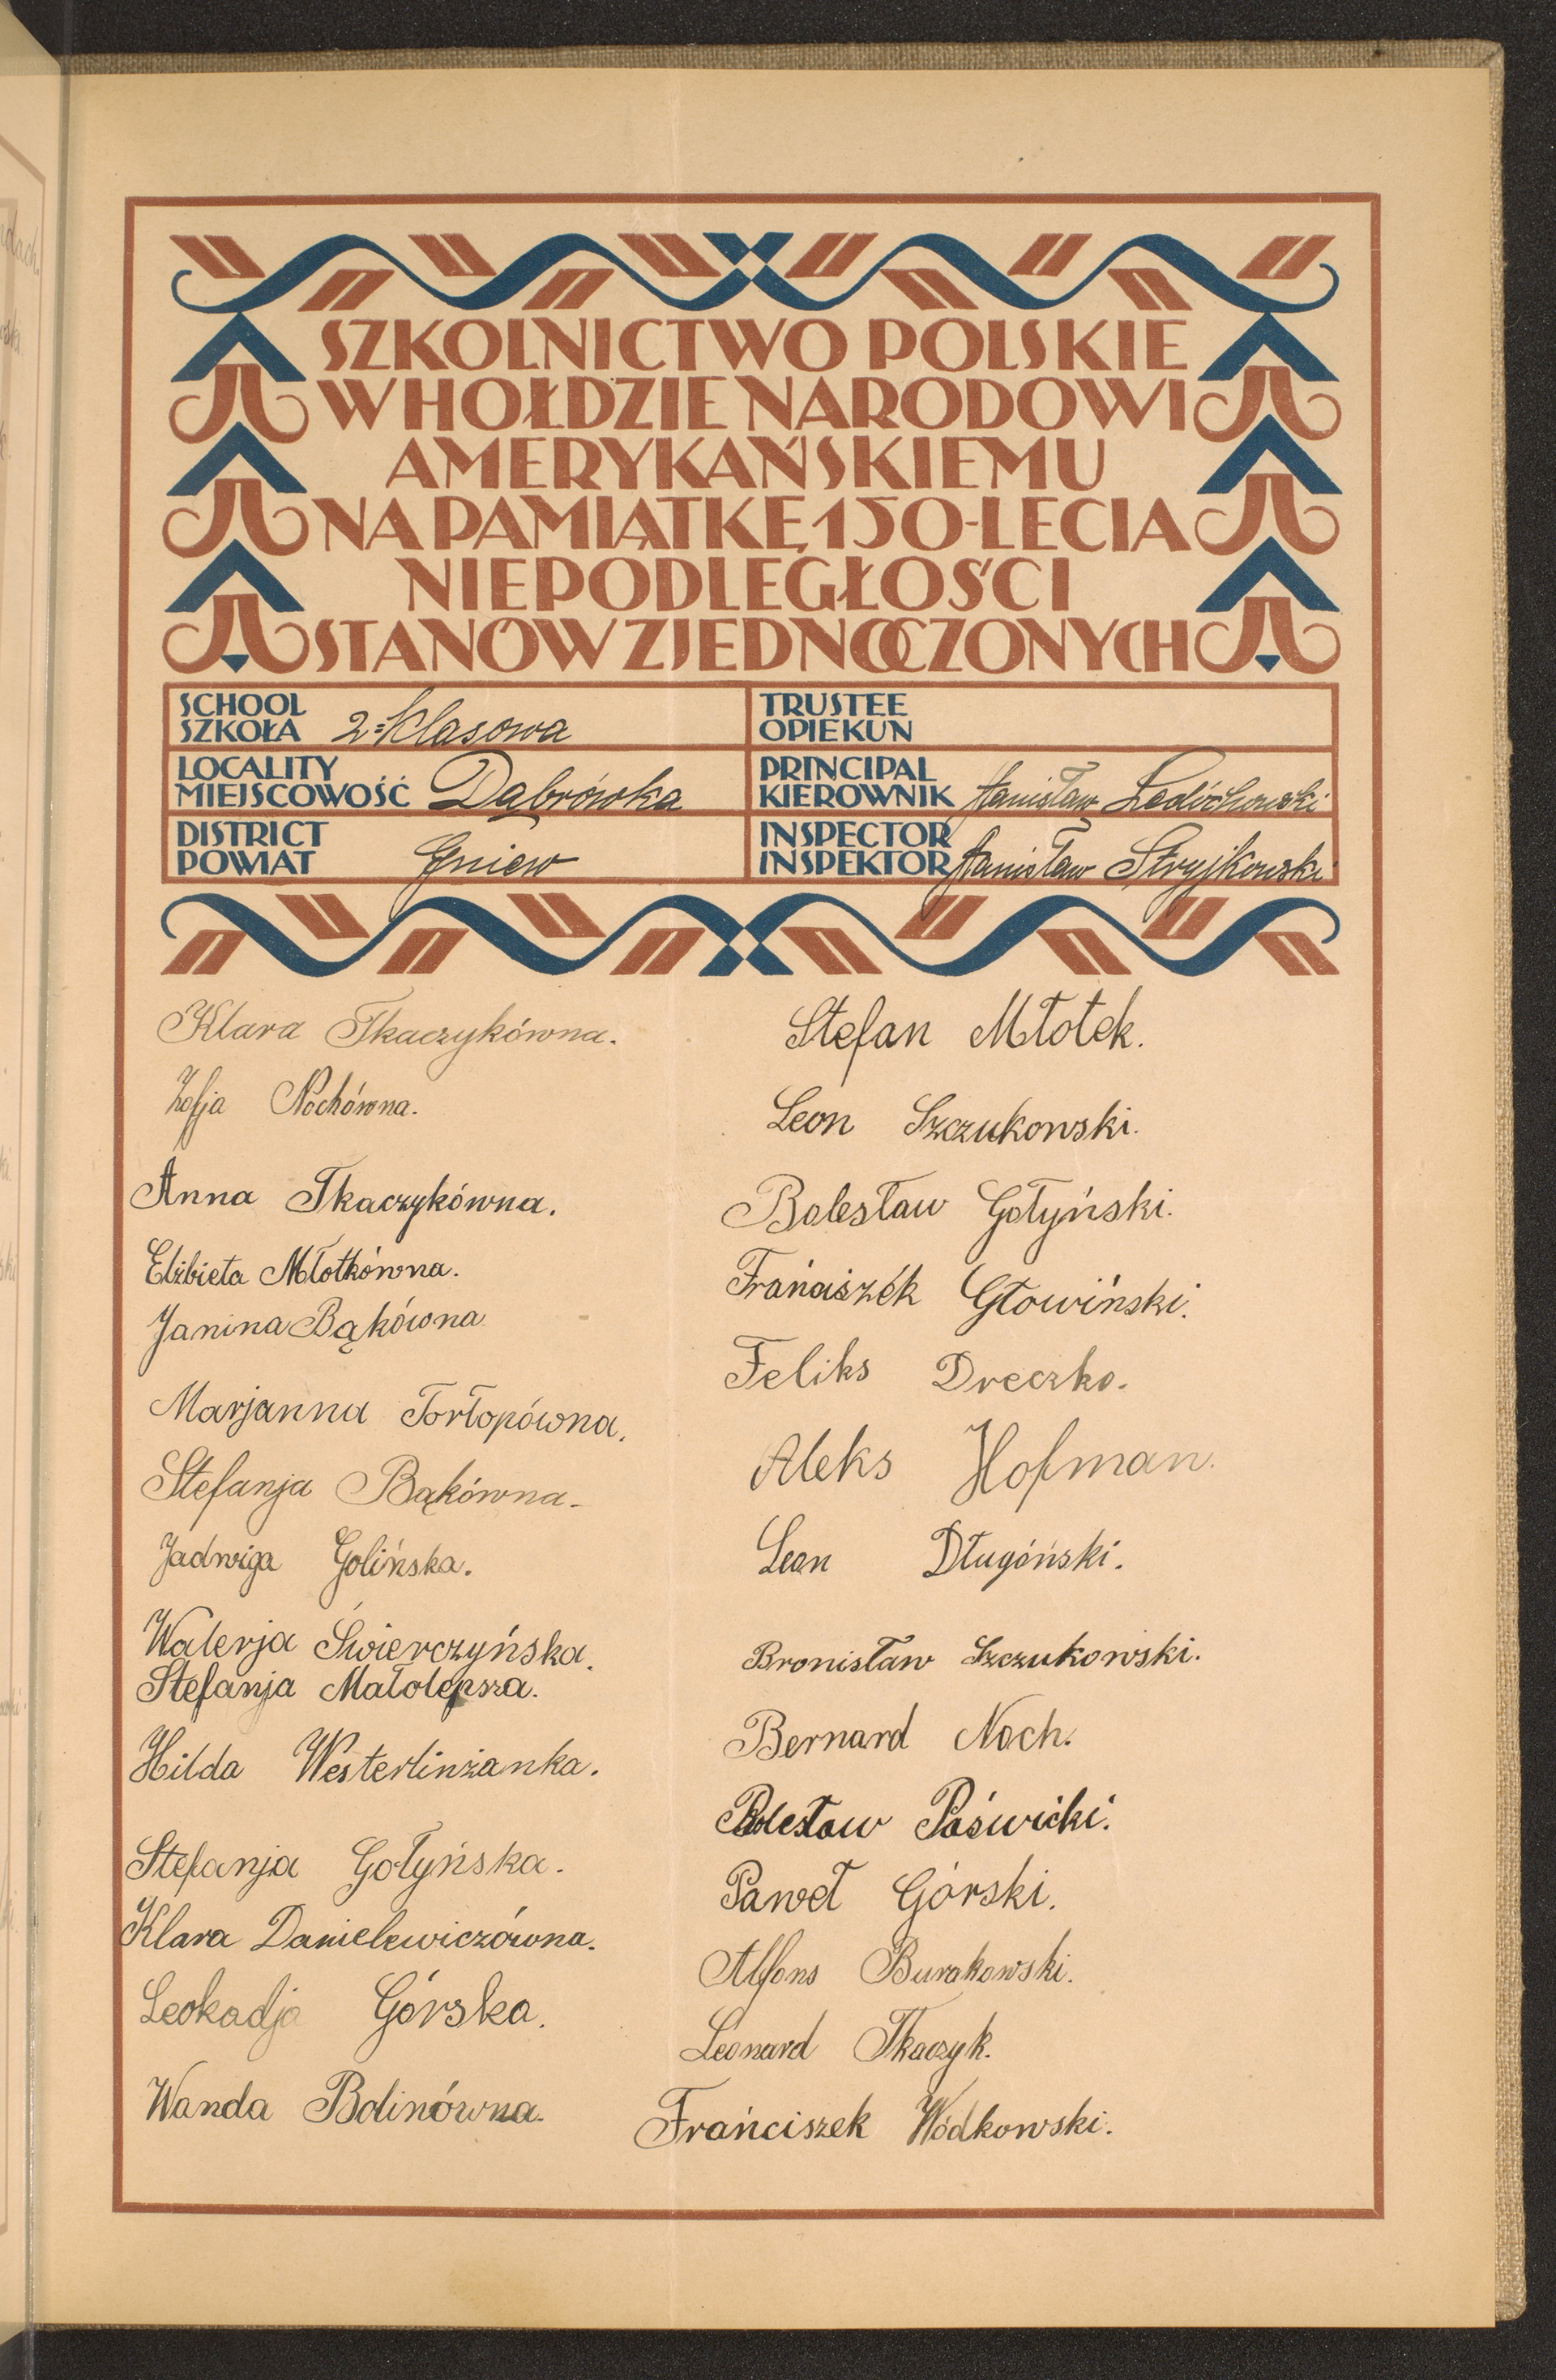 SZKOLNICTWO POLSKIE
W HOŁDZIE NARODOWI
AMERYKAŃSKIEMU
NA PAMIĄTKĘ 150-LECIA
NIEPODLEGŁOŚCI
STANÓW ZJEDNOCZONYCH
SCHOOL
SZKOŁA 2-klasowa
TRUSTEE
OPIEKUN
LOCALITY
MIEJSCOWOŚĆ Dąbrówka
PRINCIPAL
KIEROWNIK Stanisław Ledóchowski
DISTRICT
POWIAT Gniew
INSPECTOR
INSPEKTOR Stanisław Stryjkowski
Klara Tkaczykówna.
Zofja Nochówna.
Anna Tkaczykówna.
Elżbieta Młotkówna.
Janina Bąkówna
Marjanna Tortopówna.
Stefanja Bąkówna.
Jadwiga Golińska.
Walerja Świerczyńska.
Stefanja Małolepsza.
Hilda Westerlinżanka.
Stefanja Gołyńska.
Klara Danielewiczówna.
Leokadja Górska.
Wanda Bolinówna.
Stefan Młotek.
Leon Szczukowski.
Bolesław Gołyński.
Frańciszék Głowiński.
Feliks Dreczko.
Aleks Hofman.
Leon Długóński.
Bronisław Szczukowski.
Bernard Noch.
Bolesław Paświćki.
Paweł Górski.
Alfons Burakowski.
Leonard Tkaczyk.
Frańciszek Wódkowski.